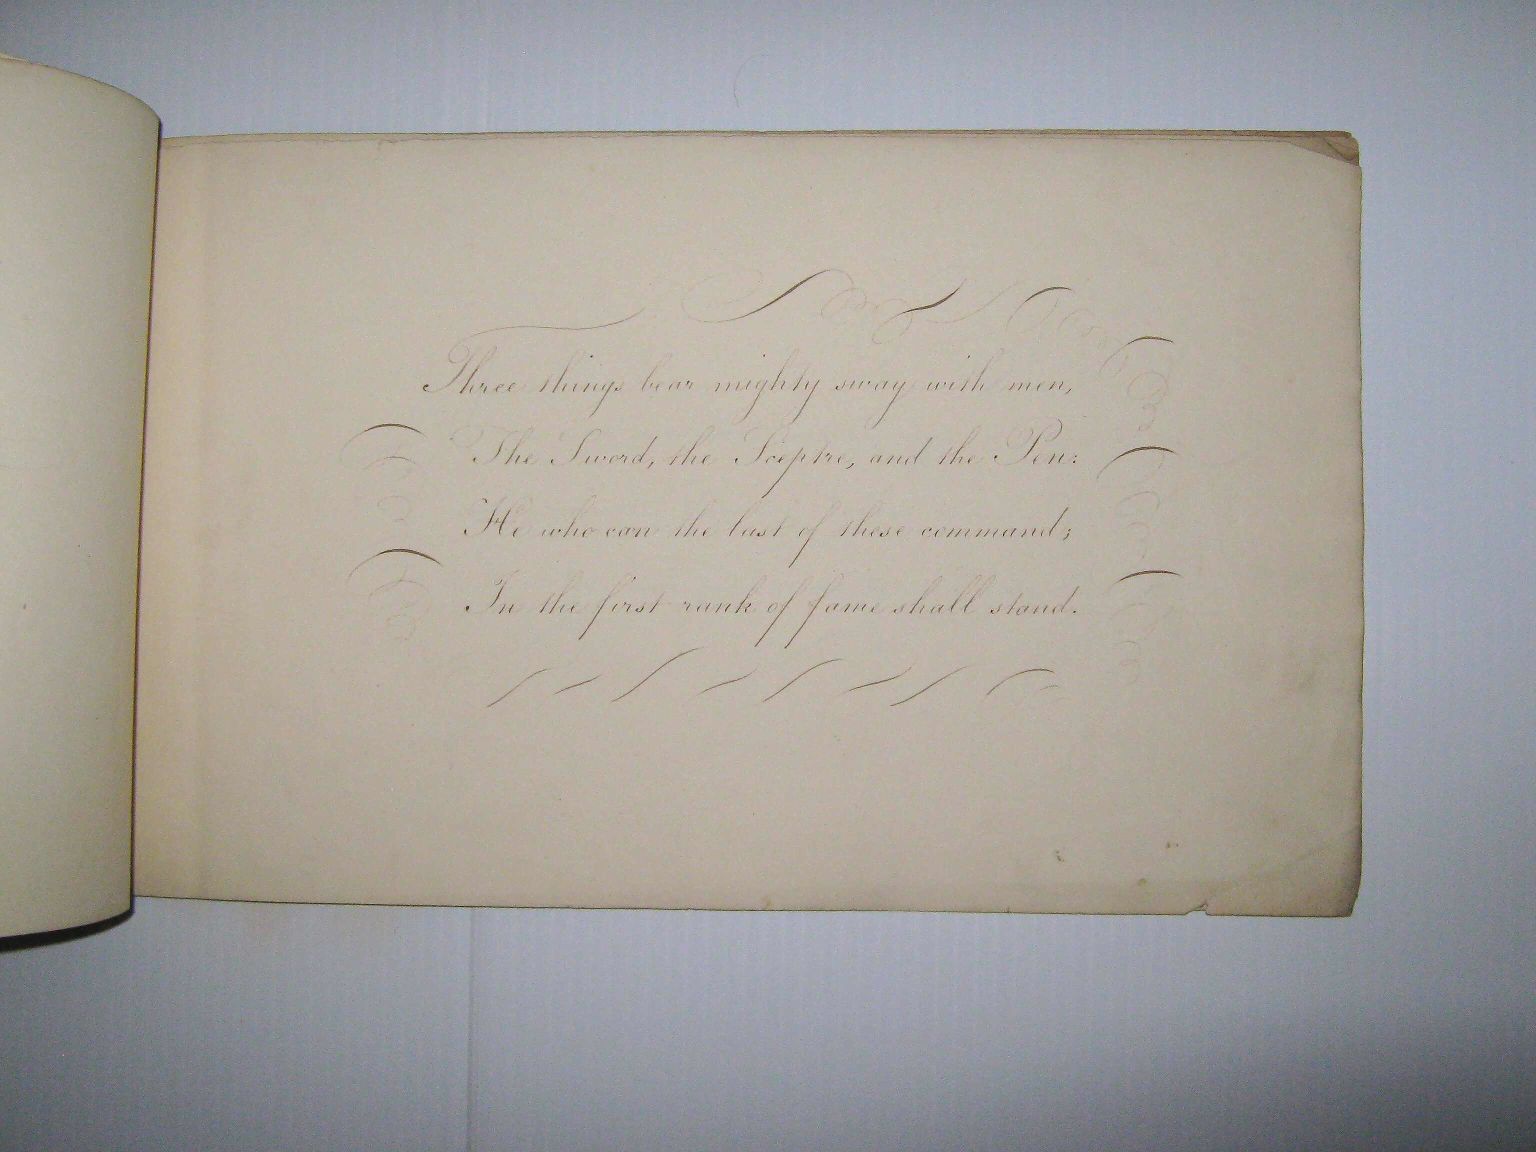 Three things bear mighty sway with men,
The Sword, the Sceptre, and the Pen:
He who can the last of these command;
In the first rank of fame shall stand.